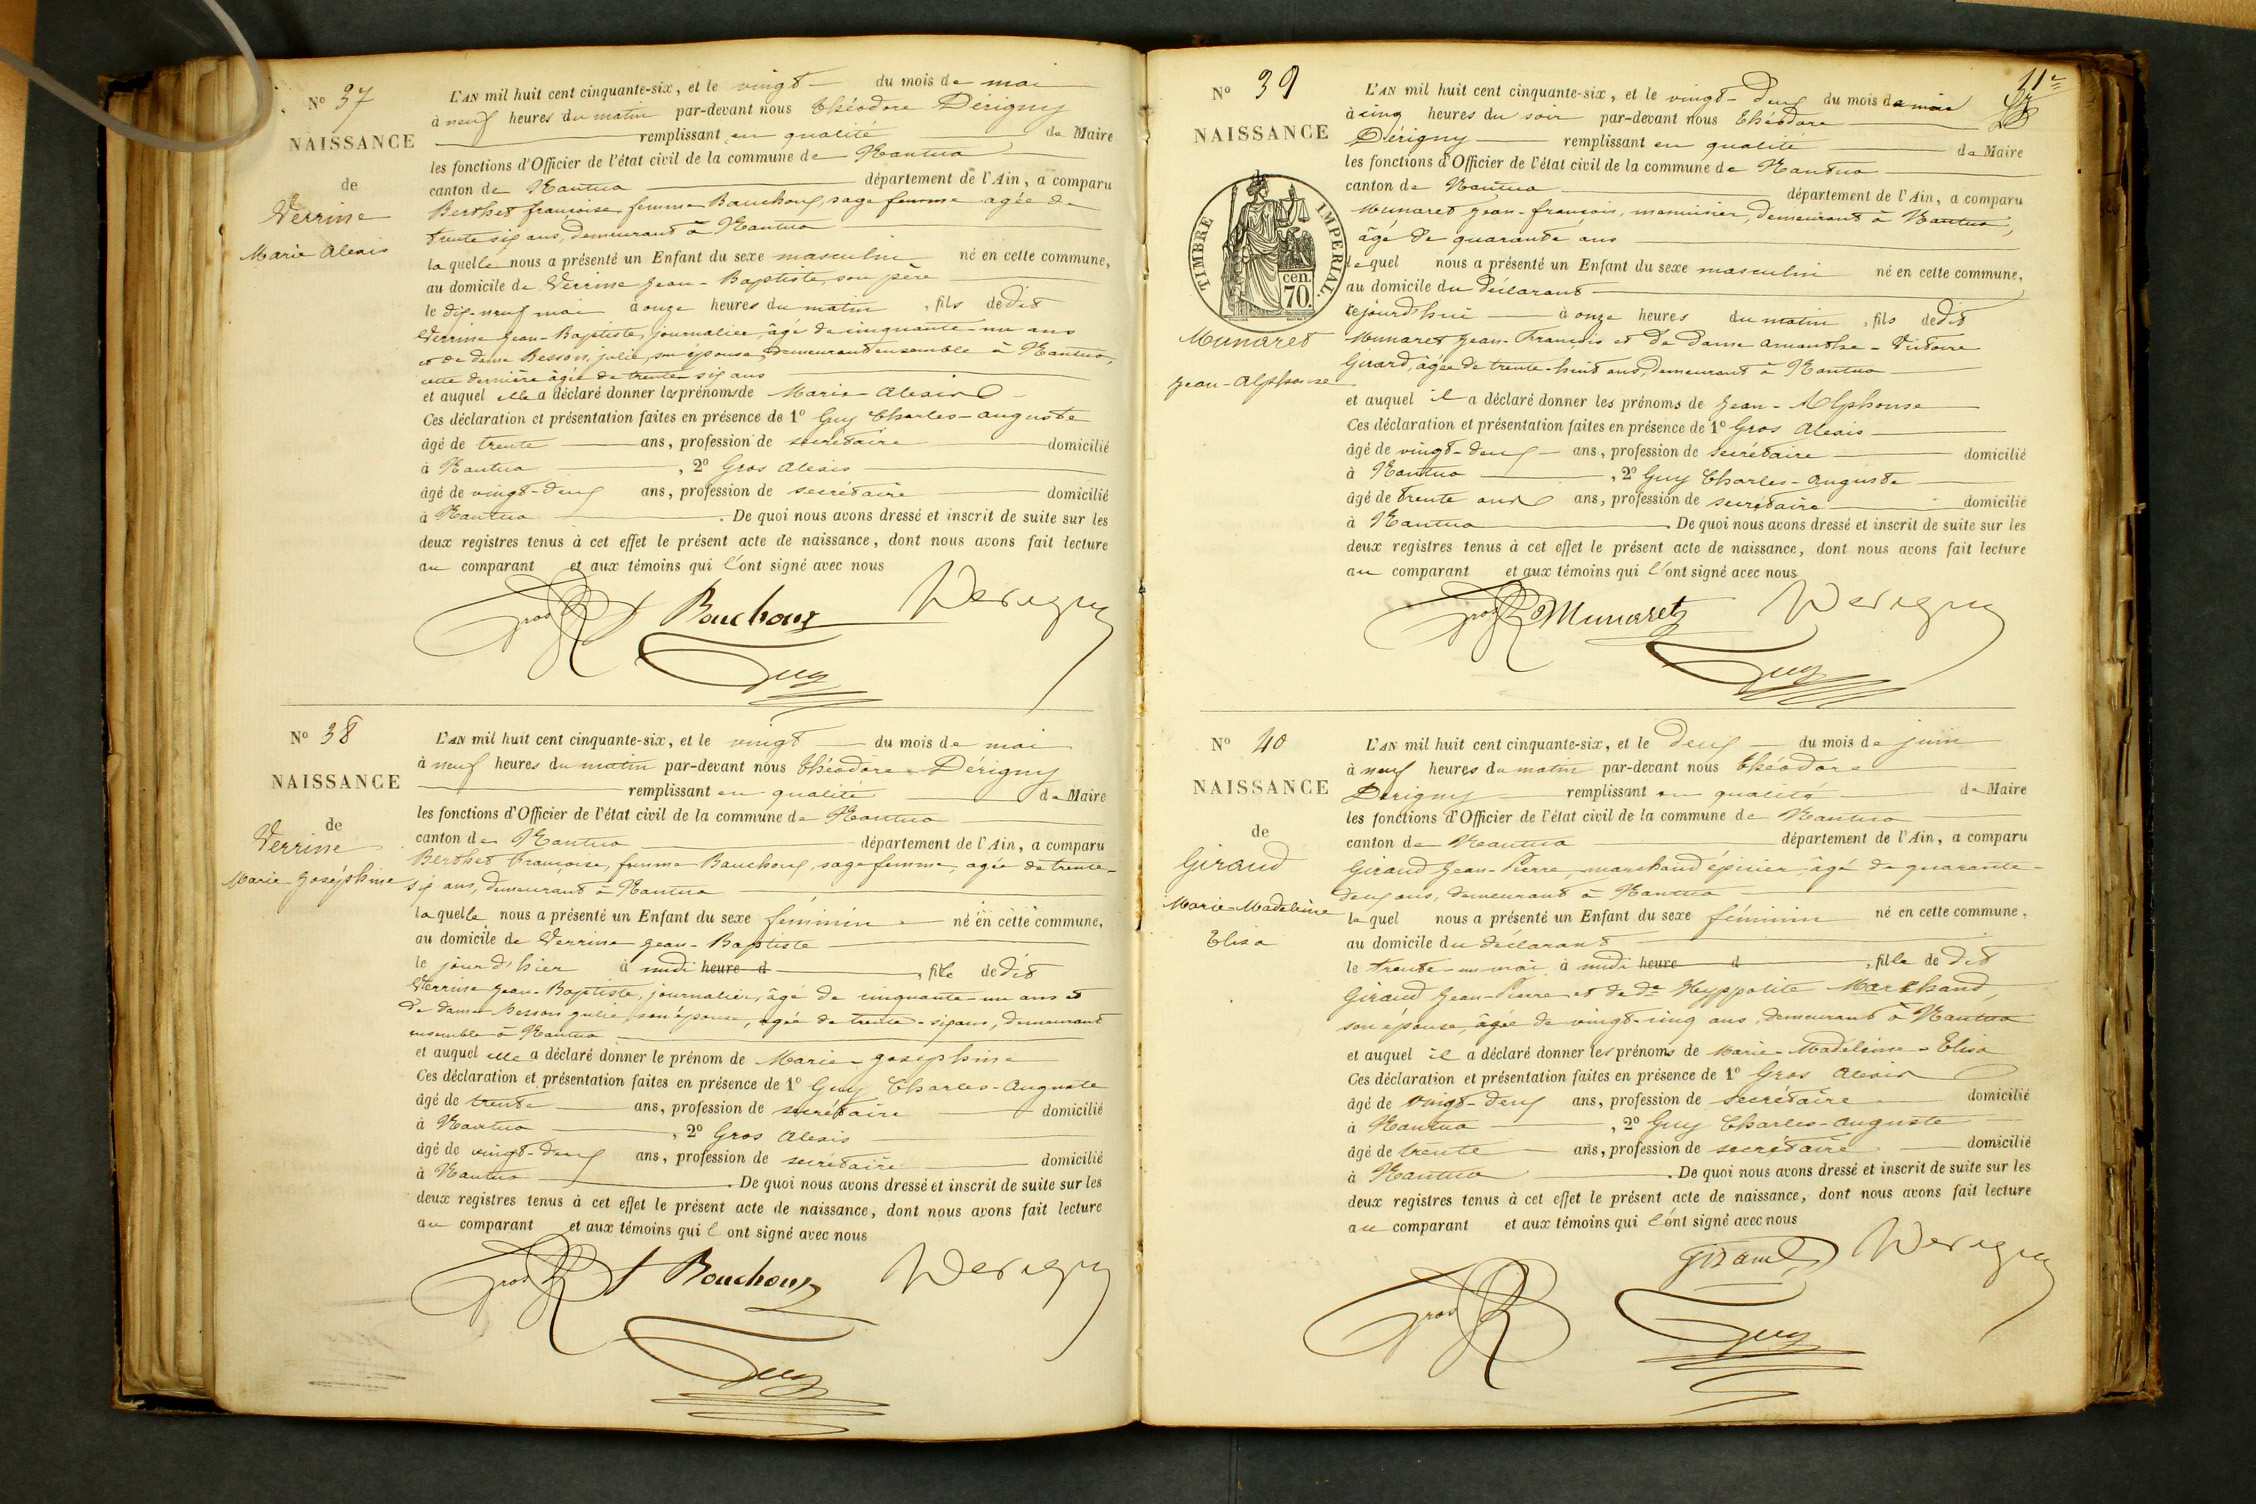 N° 37
NAISSANCE
de
Verrine
Marie Alexis
L'AN mil huit cent cinquante-six, et le vingt du mois de mai
à neuf heures du matin par-devant nous Théodore Dérigny
remplissant en qualité de Maire
les fonctions d'Officier de l'état civil de la commune de Nantua
canton de Nantua département de l'Ain, a comparu
Berthet françoise, femme Bauchoux, sage femme agée de
trente six ans, demeurant à Nantua
laquelle nous a présenté un Enfant du sexe masculin né en cette commune,
au domicile de Verrine Jean-Baptiste, son père
le dix-neuf mai à onze heures du matin, fils de dit
Verrine Jean-Baptiste, journalier, âgé de cinquante-un ans
et de dame Besson, julie, son épouse, demeurant ensemble à Nantua,
cette dernière âgée de trente six ans
et auquel elle a déclaré donner les prénoms de Marie Alexis
Ces déclaration et présentation faites en présence de 1° Guy Charles-Auguste
âgé de trente ans, profession de secrétaire domicilié
à Nantua, 2° Gros Alexis
âgé de vingt-deux ans, profession de secrétaire domicilié
à Nantua. De quoi nous avons dressé et inscrit de suite sur les
deux registres tenus à cet effet le présent acte de naissance, dont nous avons fait lecture
au comparant et aux témoins qui l'ont signé avec nous
Gros Bouchoux Derigny
Guy
N° 38
NAISSANCE
de
Verrine
Marie Joséphine
L'AN mil huit cent cinquante-six, et le vingt du mois de mai
à neuf heures du matin par-devant nous Théodore Dérigny
remplissant en qualité de Maire
les fonctions d'Officier de l'état civil de la commune de Nantua
canton de Nantua département de l'Ain, a comparu
Berthet françoise, femme Bauchoux, sage femme, agée de trente-
six ans, demeurant à Nantua
laquelle nous a présenté un Enfant du sexe féminin né en cette commune,
au domicile de Verrine Jean-Baptiste
le jour d'hier à midi heure d, fille de dit
Verrine Jean-Baptiste, journalier, âgé de cinquante-un ans et
de dame Besson julie, son épouse, agée de trente-six ans, demeurant
ensemble à Nantua
et auquel elle a déclaré donner le prénom de Marie-Joséphine
Ces déclaration et présentation faites en présence de 1° Guy Charles-Auguste
âgé de trente ans, profession de secrétaire domicilié
à Nantua, 2° Gros Alexis
âgé de vingt-deux ans, profession de secrétaire domicilié
à Nantua. De quoi nous avons dressé et inscrit de suite sur les
deux registres tenus à cet effet le présent acte de naissance, dont nous avons fait lecture
au comparant et aux témoins qui l ont signé avec nous
Gros Bouchoux Derigny
Guy
11e
N° 39
NAISSANCE
TIMBRE IMPERIAL.
cen.
70.
Munaret
Jean-Alphonse
L'AN mil huit cent cinquante-six, et le vingt-deux du mois de mai
à cinq heures du soir par-devant nous Théodore
Dérigny remplissant en qualité de Maire
les fonctions d'Officier de l'état civil de la commune de Nantua
canton de Nantua département de l'Ain, a comparu
Munaret Jean-françois, menuisier, demeurant à Nantua,
âgé de quarante ans
lequel nous a présenté un Enfant du sexe masculin né en cette commune,
au domicile du déclarant
cejourd'hui à onze heures du matin, fils de dit
Munaret Jean-François et de Dame Amanthe-Victoire
Girard, âgée de trente-huit ans, demeurant à Nantua
et auquel il a déclaré donner les prénoms de Jean-Alphonse
Ces déclaration et présentation faites en présence de 1° Gros Alexis
âgé de vingt-deux ans, profession de secrétaire domicilié
à Nantua, 2° Guy Charles-Auguste
âgé de trente ans ans, profession de secrétaire domicilié
à Nantua. De quoi nous avons dressé et inscrit de suite sur les
deux registres tenus à cet effet le présent acte de naissance, dont nous avons fait lecture
au comparant et aux témoins qui l'ont signé avec nous
Gros Munaret Derigny
Guy
N° 40
NAISSANCE
de
Giraud
Marie-Madeleine
Elisa
L'AN mil huit cent cinquante-six, et le deux du mois de juin
à neuf heures du matin par-devant nous Théodore
Derigny remplissant en qualité de Maire
les fonctions d'Officier de l'état civil de la commune de Nantua
canton de Nantua département de l'Ain, a comparu
Giraud Jean-Pierre, marchand épicier, âgé de quarante-
deux ans, demeurant à Nantua
lequel nous a présenté un Enfant du sexe féminin né en cette commune,
au domicile du déclarant
le trente-un mai à midi heure d, fille de dit
Giraud Jean-Pierre et de de Hyppolite Marchand,
son épouse, âgée de vingt-cinq ans, demeurant à Nantua
et auquel il a déclaré donner les prénoms de Marie-Madeleine-Elisa
Ces déclaration et présentation faites en présence de 1° Gros Alexis
âgé de vingt-deux ans, profession de secrétaire domicilié
à Nantua, 2° Guy Charles-Auguste
âgé de trente ans, profession de secrétaire domicilié
à Nantua. De quoi nous avons dressé et inscrit de suite sur les
deux registres tenus à cet effet le présent acte de naissance, dont nous avons fait lecture
au comparant et aux témoins qui l'ont signé avec nous
Giraud Derigny
Gros Guy